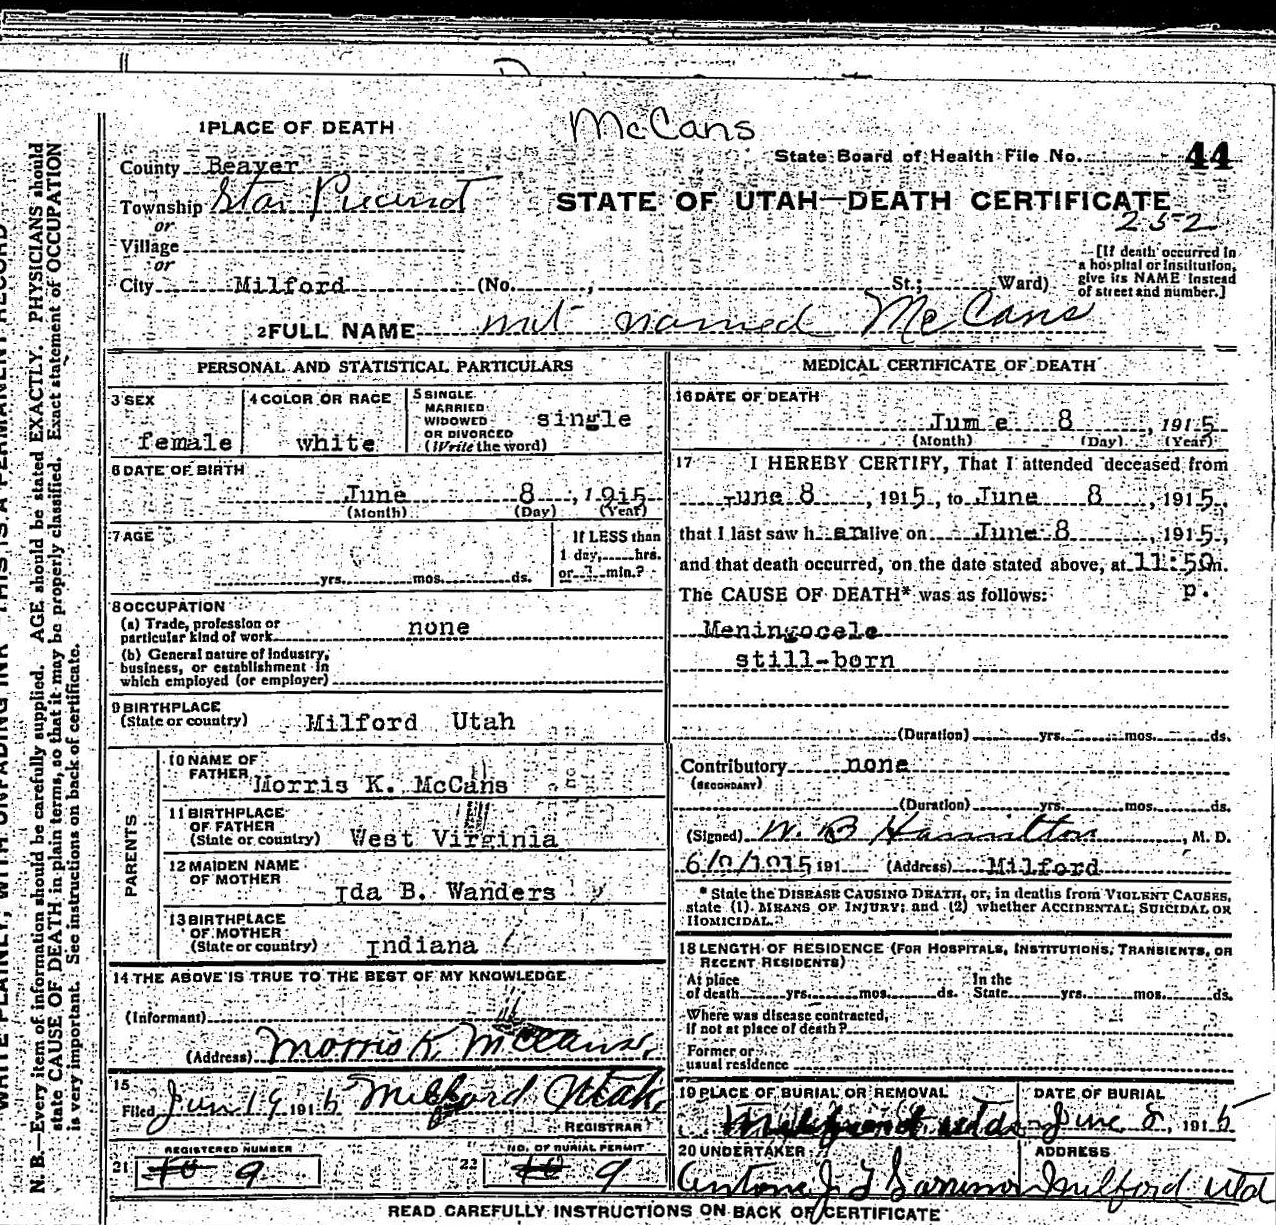 McCans
1 PLACE OF DEATH
State Board of Health File No. 44
County Beaver
Township Star Precinct
STATE OF UTAH—DEATH CERTIFICATE
252
or
Village
or
City Milford (No. , St.; Ward)
[If death occurred in
a hospital or institution,
give its NAME instead
of street and number.]
2 FULL NAME not named McCans
PERSONAL AND STATISTICAL PARTICULARS
3 SEX
female
4 COLOR OR RACE
white
5 SINGLE
MARRIED
WIDOWED
OR DIVORCED
(Write the word)
single
6 DATE OF BIRTH
June 8, 1915
(Month) (Day) (Year)
7 AGE
yrs. mos. ds.
If LESS than
1 day, hrs.
or min.?
8 OCCUPATION
(a) Trade, profession or
particular kind of work none
(b) General nature of Industry,
business, or establishment in
which employed (or employer)
9 BIRTHPLACE
(State or country) Milford Utah
PARENTS
10 NAME OF
FATHER Morris K. McCans
11 BIRTHPLACE
OF FATHER
(State or country) West Virginia
12 MAIDEN NAME
OF MOTHER Ida B. Wanders
13 BIRTHPLACE
OF MOTHER
(State or country) Indiana
14 THE ABOVE IS TRUE TO THE BEST OF MY KNOWLEDGE
(Informant)
(Address) Morris K. McCans.
15
Filed Jun 19 1915 Milford Utah.
REGISTRAR
REGISTERED NUMBER
21 10 9
NO. OF BURIAL PERMIT
22 10 9
MEDICAL CERTIFICATE OF DEATH
16 DATE OF DEATH
Jum e 8, 1915
(Month) (Day) (Year)
17 I HEREBY CERTIFY, That I attended deceased from
June 8, 1915, to June 8, 1915,
that I last saw h er alive on June 8, 1915,
and that death occurred, on the date stated above, at 11:50 m.
p.
The CAUSE OF DEATH* was as follows:
Meningocele
still-born
(Duration) yrs. mos. ds.
Contributory none
(SECONDARY)
(Duration) yrs. mos. ds.
(Signed) W. B Hamilton, M. D.
1915 191 (Address) Milford
* State the DISEASE CAUSING DEATH, or, in deaths from VIOLENT CAUSES,
state (1) MEANS OF INJURY; and (2) whether ACCIDENTAL, SUICIDAL OR
HOMICIDAL.
18 LENGTH OF RESIDENCE (FOR HOSPITALS, INSTITUTIONS, TRANSIENTS, OR
RECENT RESIDENTS)
At place
of death yrs. mos. ds.
In the
State yrs. mos. ds.
Where was disease contracted,
if not at place of death?
Former or
usual residence
19 PLACE OF BURIAL OR REMOVAL
DATE OF BURIAL
June 8, 1915
20 UNDERTAKER
Antone J
ADDRESS
Milford Utd
READ CAREFULLY INSTRUCTIONS ON BACK OF CERTIFICATE
WRITE PLAINLY, WITH UNFADING INK—THIS IS A PERMANENT RECORD
N. B.—Every item of information should be carefully supplied. AGE should be stated EXACTLY. PHYSICIANS should
state CAUSE OF DEATH in plain terms, so that it may be properly classified. Exact statement of OCCUPATION
is very important. See instructions on back of certificate.